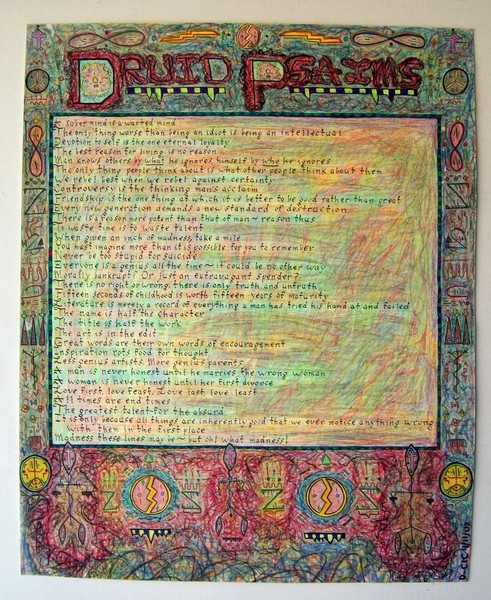 DRUID PSALMS
A sober mind is a wasted mind
The only thing worse than being an idiot is being an intellectual
Devotion to self is the one eternal loyalty
The best reason for living is no reason
Man knows others by what he ignores, himself by who he ignores
The only thing people think about is what other people think about them
We rebel best when we rebel against certainty
Controversy is the thinking man's acclaim
Friendship is the one thing at which it is better to be good rather than great
Every new generation demands a new standard of destruction
There is a reason more potent than that of man ~ reason thus
To waste time is to waste talent
When given an inch of madness, take a mile
You must imagine more than it is possible for you to remember
Never be too stupid for suicide
Everyone is a genius all the time ~ it could be no other way
Morally bankrupt? Or just an extravagant spender?
There is no right or wrong, there is only truth and untruth
Fifteen seconds of childhood is worth fifteen years of maturity
Literature is merely a record of everything a man has tried his hand at and failed
The name is half the character
The title is half the work
The art is in the edit
Great words are their own words of encouragement
Inspiration rots food for thought
Less genius artists. More genius parents
A man is never honest until he marries the wrong woman
A woman is never honest until her first divorce
Love first, love feast. Love last, love least
All times are end times
The greatest talent ~ for the absurd
It is only because all things are inherently good that we ever notice anything wrong
with them in the first place
Madness these lines may be ~ but oh! what madness!